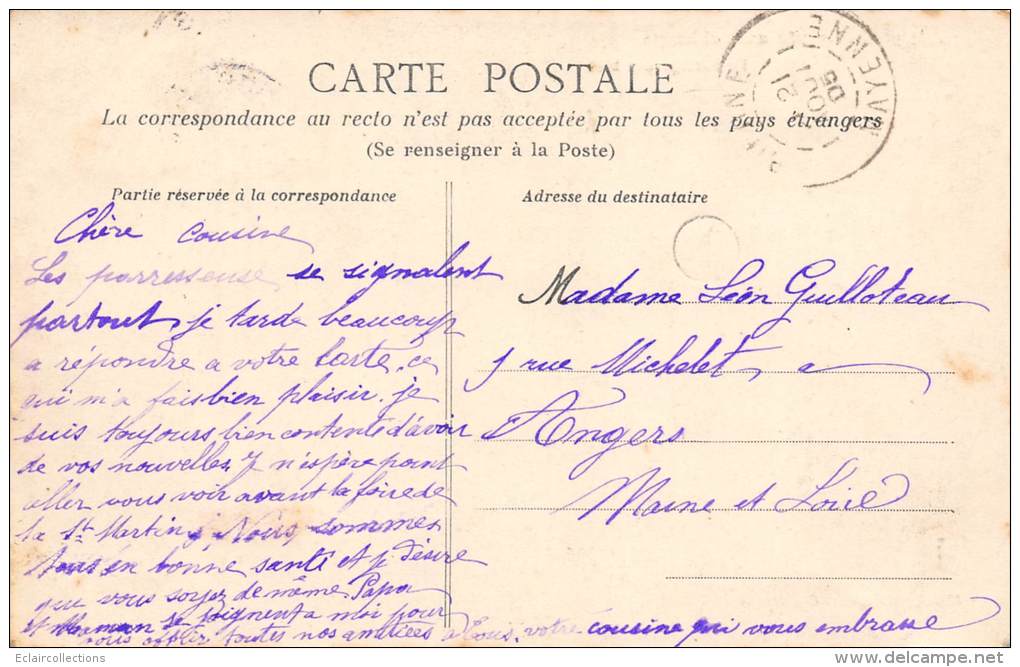 CARTE POSTALE
La correspondance au recto n'est pas acceptée par tous les pays étrangers
(Se renseigner à la Poste)
Partie réservée à la correspondance
Adresse du destinataire
MAYENNE
21
05
Chère cousine
Les parresseuse se signalent
partout, je tarde beaucoup
a répondre a votre carte, ce
qui m'a fais bien plaisir. je
suis toujours bien contente d'avoir
de vos nouvelles. J n'éspère point
aller vous voir avant la foire de
la St Martin, Nous sommes
tous en bonne santé et je désire
que vous soyez de même Papa
et Maman se joignent a moi pour
vous offrir toutes nos amitiées a tous, votre cousine qui vous embrasse
Madame Léon Guilloteau
1 rue Michelet a
Angers
Maine et Loire
Eclaircollections
http://www.delcampe.net